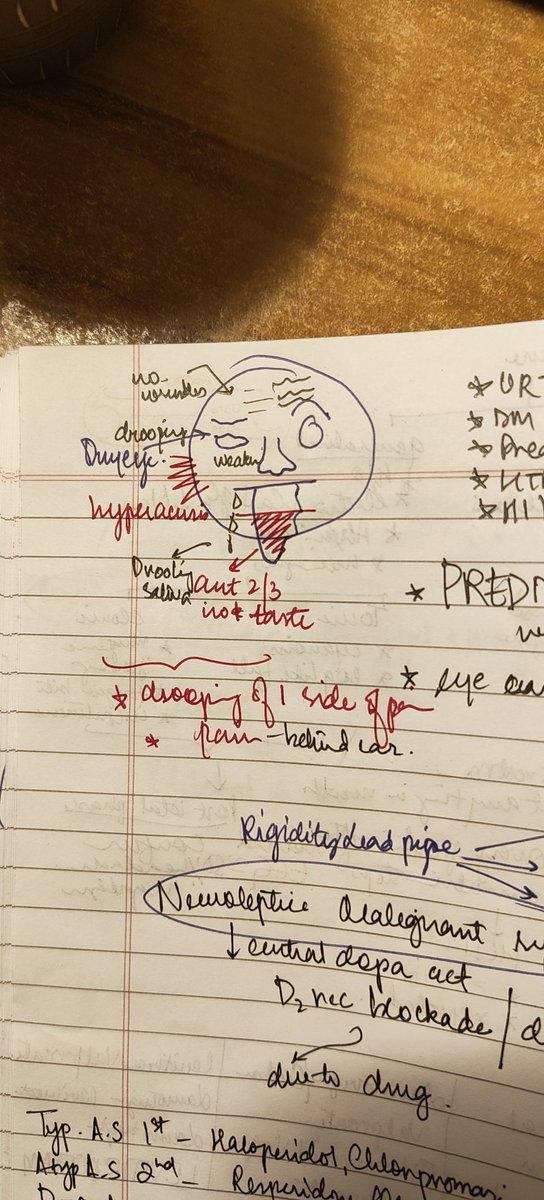 no
wrinkles
drooping
Dry eye
weaken
hyperacusis
Drooling
saliva
ant 2/3
no taste
* URT
* DM
* Pre
* HTN
* HIV
* PREDN
* drooping of 1 side of
* pain - behind ear.
* eye car
Rigidity, lead pipe
Neuroleptic Malignant
↓ central dopa act
D₂ rec blockade /
due to drug.
Typ. A.S 1st – Haloperidol, Chlorpromazi
Atyp A.S 2nd –